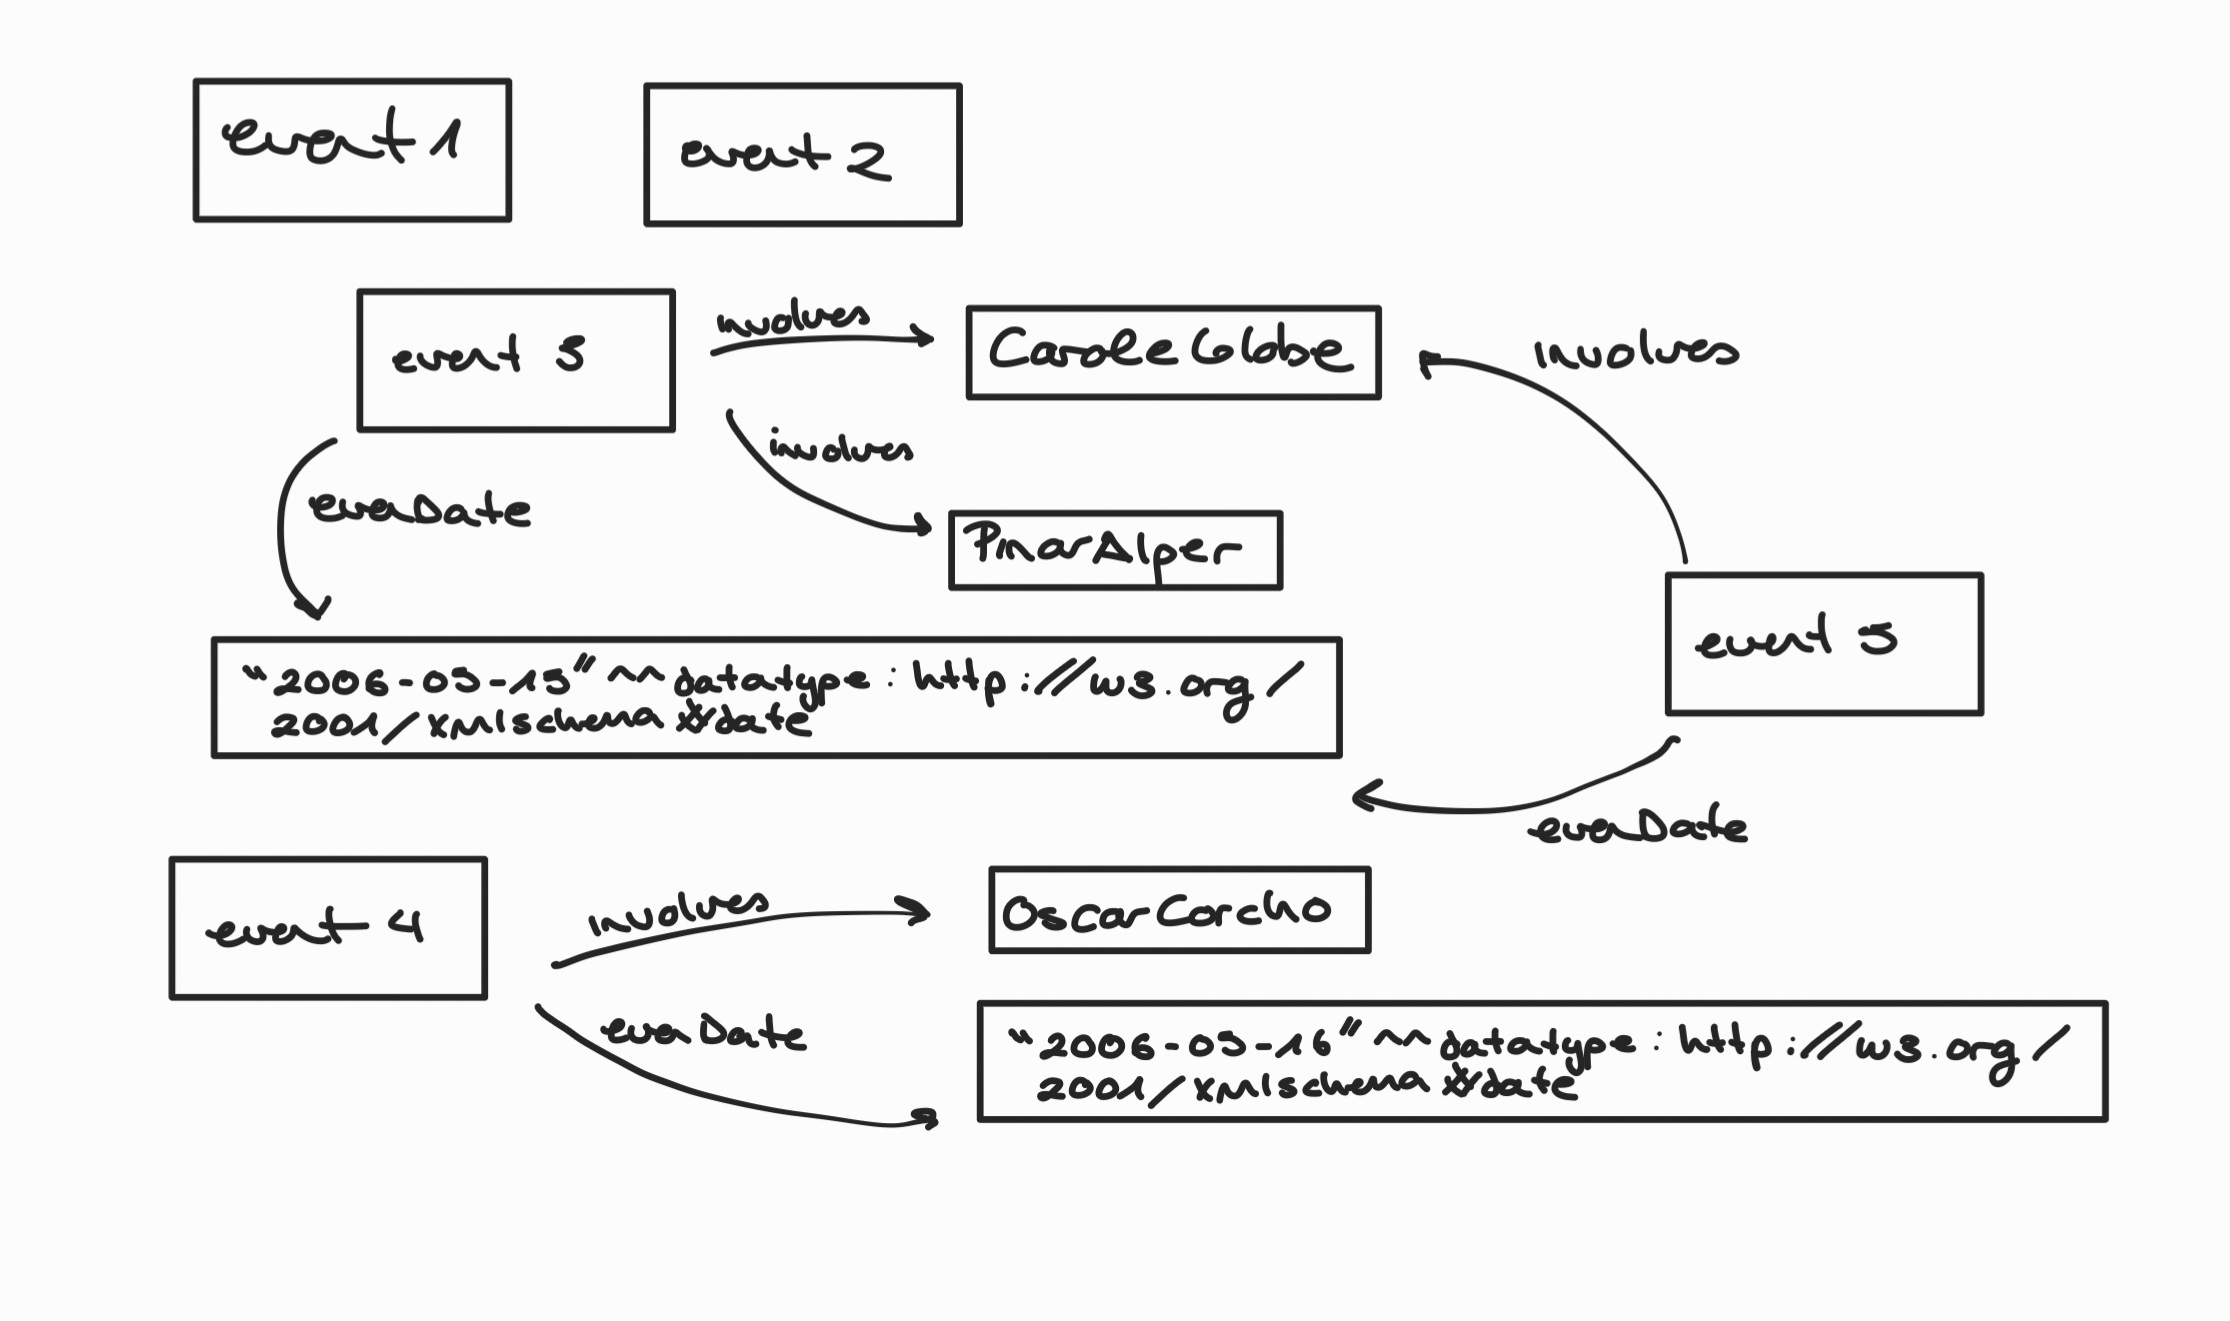 event 1
event 2
event 3
involves
CaroleGoble
involves
involves
evenDate
PinarAlper
event 5
"2006-05-15" ^^ datatype : http://w3.org/
2001/xmlschema #date
evenDate
event 4
involves
OscarCorcho
evenDate
"2006-05-16" ^^ datatype : http://w3.org/
2001/xmlschema #date